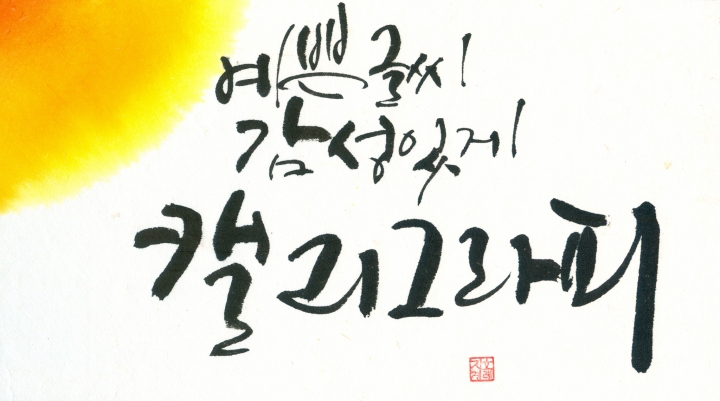 예쁜글씨
감성있게
캘리그라피